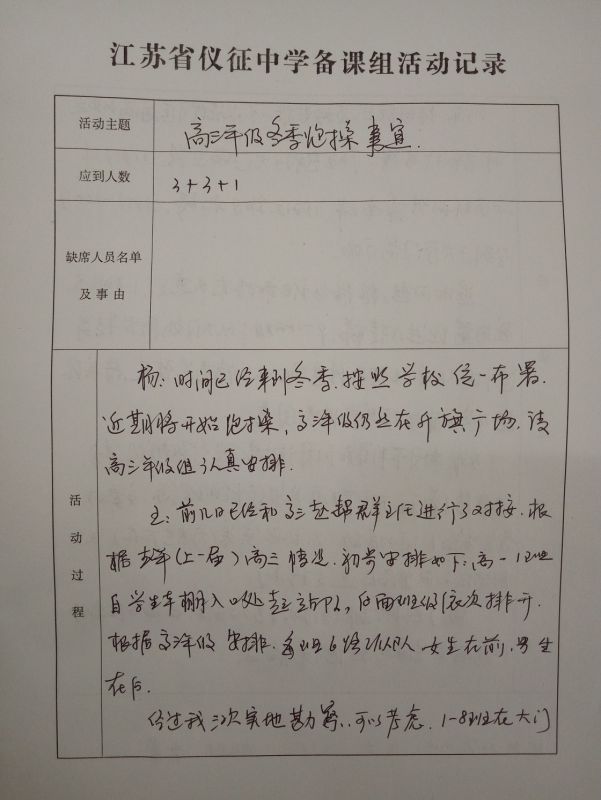 江苏省仪征中学备课组活动记录
活动主题
高三年级冬季跑操事宜.
应到人数
3+3+1
缺席人员名单
及事由
活动过程
杨：时间已经来到冬季.按照学校统一布署.
近期将开始跑操,高三年级仍然在升旗广场.请
高三年级组认真安排.
王：前几日已经和高三赵锦群主任进行了对接.根
据去年(上一届)高三情况.初步安排如下:高一1班
自学生车棚入口处起站队,后面班级依次排开.
根据高三年级安排.每班6路纵队 女生在前,男生
在后.
经过我三次实地勘察..可以考虑.1-8班在大门